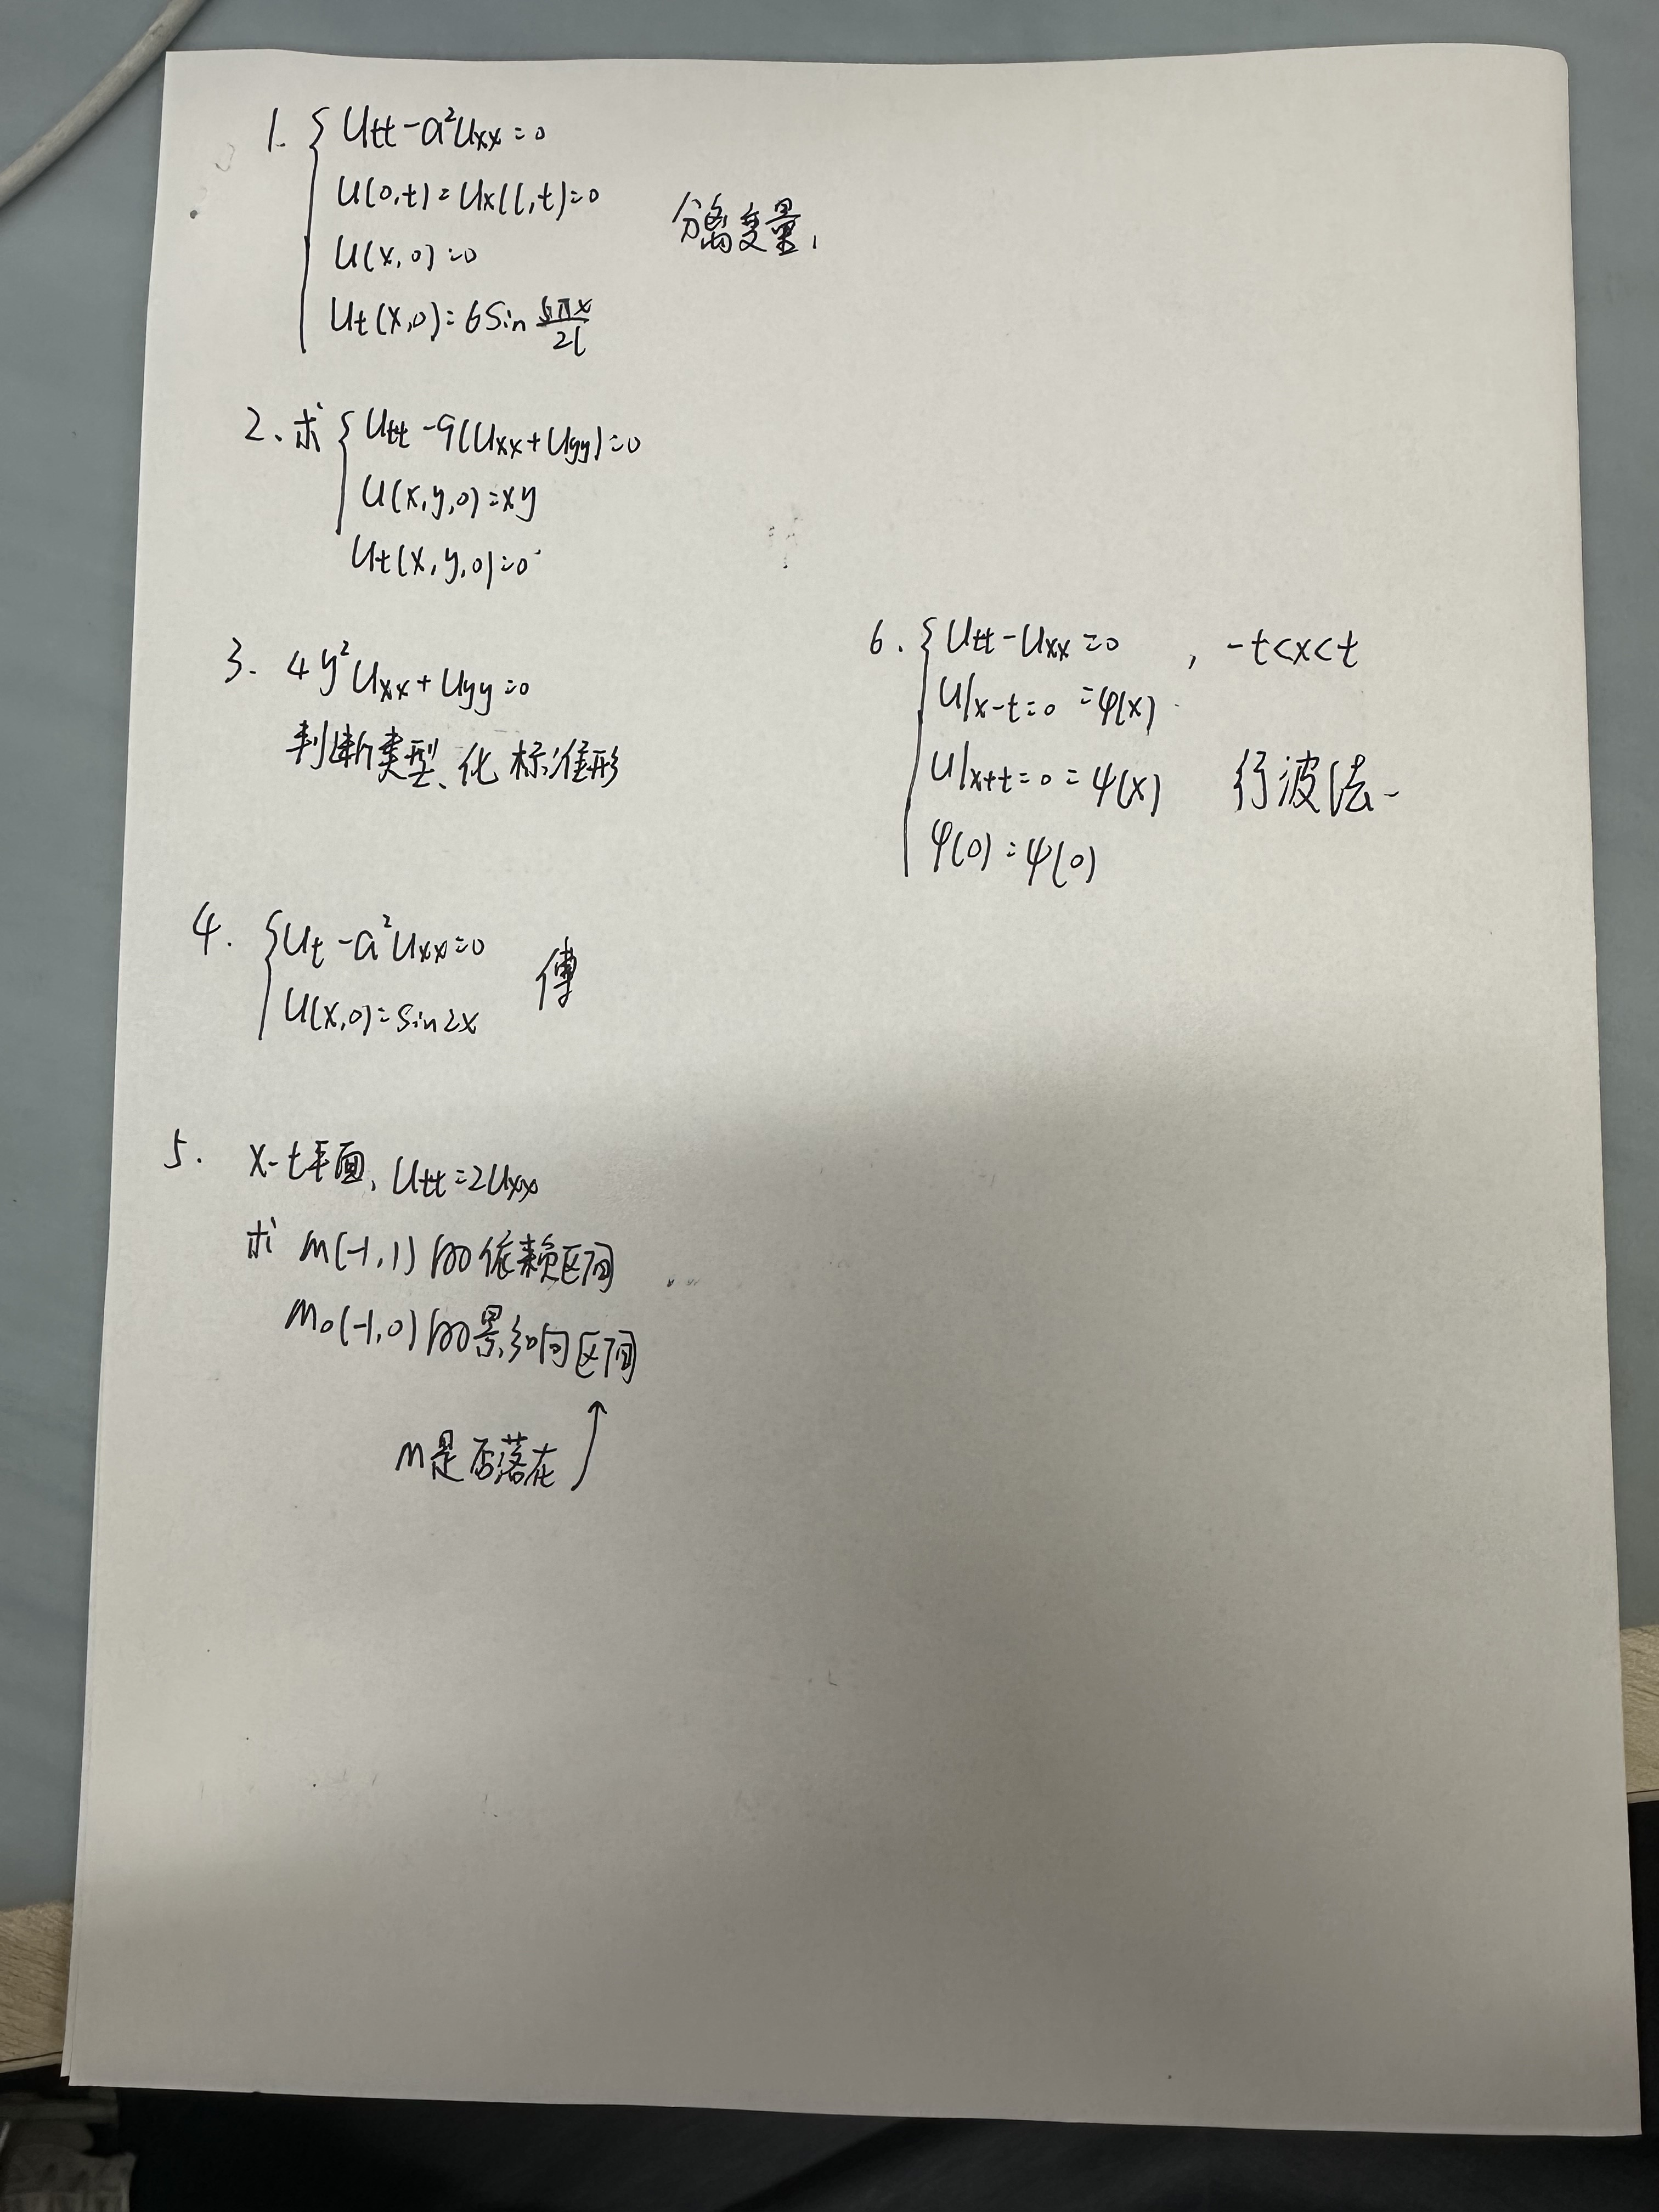 1. { Utt - a²Uxx = 0
U(0,t) = Ux(l,t) = 0
分离变量,
U(x,0) = 0
Ut(x,0) = 6 Sin 5πx/2l
2、求 { Utt - 9(Uxx + Uyy) = 0
U(x,y,0) = xy
Ut(x,y,0) = 0
3. 4y²Uxx + Uyy = 0
判断类型、化标准形
4. { Ut - a²Uxx = 0
傅
U(x,0) = Sin2x
5. x-t平面, Utt = 2Uxx
求 m(-1,1)的依赖区间
m0(-1,0)的影响区间
m是否落在 ↗
6. { Utt - Uxx = 0 , -t<x<t
U|x-t=0 = φ(x)
U|x+t=0 = ψ(x) 行波法-
φ(0) = ψ(0)